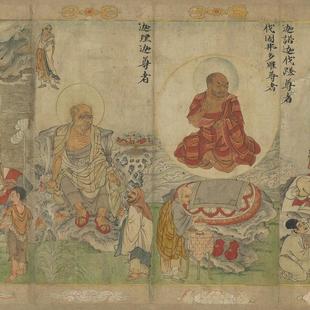 迦諾迦伐蹉尊者
伐闍弗多羅尊者
迦理迦尊者